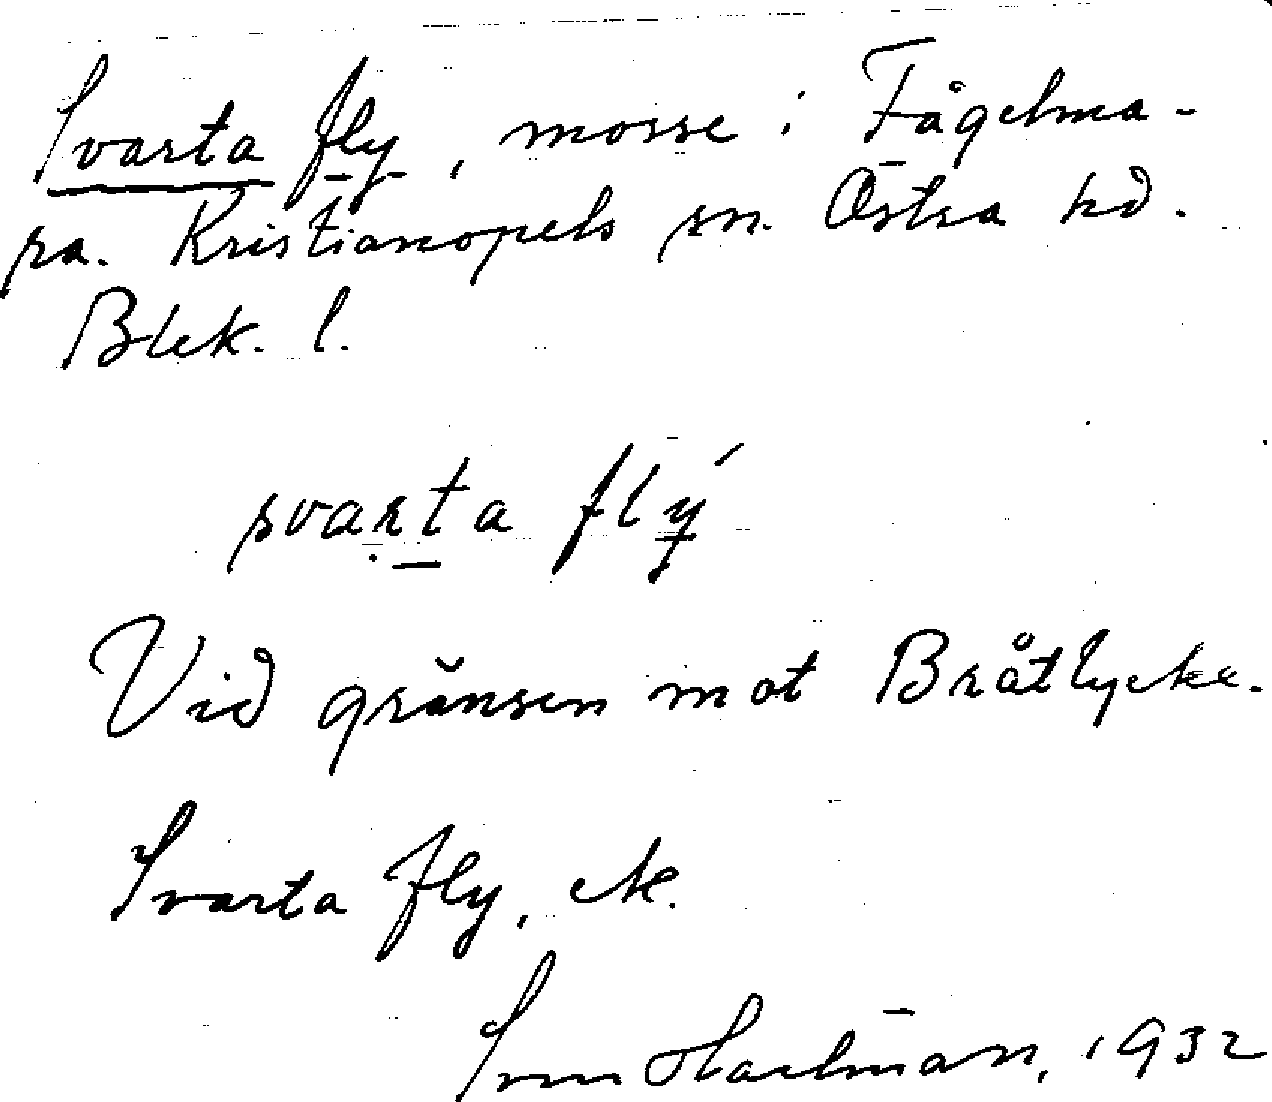 Svarta fly, mosse i Fågelma-
ra. Kristianopels sn. Östra hd.
Blek. l.
svarta flý
Vid gränsen mot Bråtlycke.
Svarta fly, ek.
Sven Harlman, 1932